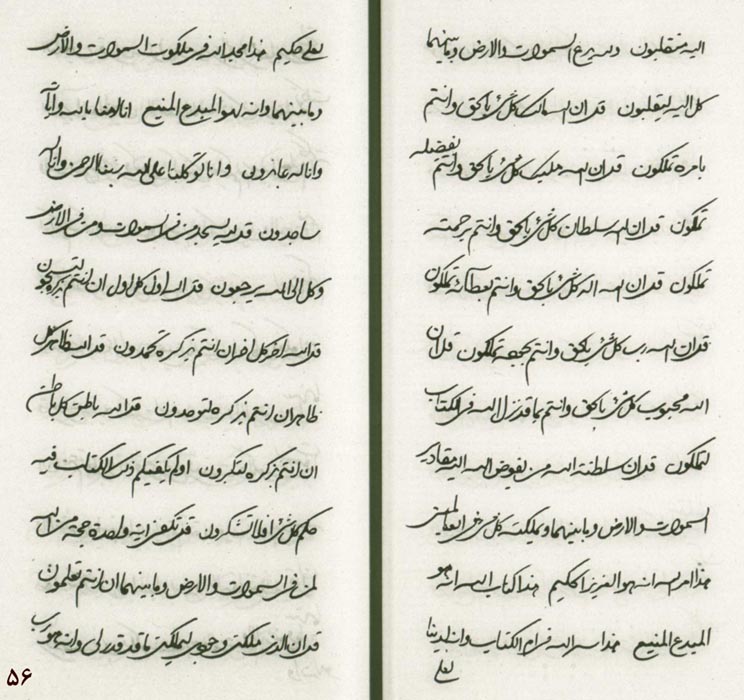 اليه منقلبون وله يرع السموات والارض وما بينهما
كل اليه لينقلبون قل ان الله مالك كل شئ بالحق وانتم
بامره تملكون قل ان الله مليك كل شئ بالحق وانتم بفضله
تملكون قل ان الله سلطان كل شئ بالحق وانتم برحمته
تملكون قل ان الله اله كل شئ بالحق وانتم بعطائه تملكون
قل ان الله رب كل شئ بالحق وانتم بحجته تملكون قل ان
الله محبوب كل شئ بالحق وانتم بما قد نزل الله فى الكتاب
لتملكون قل ان سلطنة الله من يفوض الله اليه مقادير
السموات والارض وما بينهما ومليكته كل شئ فى العالمين
هذا امر الله انه هو العزيز الحكيم هذا كتاب الله انه هو
المبدع المنيع هذا سر الله فى ام الكتاب وانه لدينا
لعلى
لعلى حكيم هذا مجد الله فى ملكوت السموات والارض
وما بينهما وانه لهو المبدع المنيع انا امنا بالله وانا
وانا له عابدون وانا توكلنا على الله ربنا الرحمن وانا له
ساجدون قل له يسجد من فى السموات ومن فى الارض
وكل الى الله يرجعون قل الله اول كل اول ان انتم بذكره لتسبحون
قل الله اخر كل اخر ان انتم بذكره تحمدون قل الله ظاهر كل
ظاهر ان انتم بذكره لتوحدون قل الله باطن كل باطن
ان انتم بذكره لتكبرون اولم يكفيكم ذلك الكتاب فيه
حكم كل شئ افلا تشكرون قل تكفى اية واحدة حجة من الله
لمن فى السموات والارض وما بينهما ان انتم تعلمون
قل ان الذى ملكنى وجودى ليملكنى ما قد قدر لى وانه هو رب
۵۶